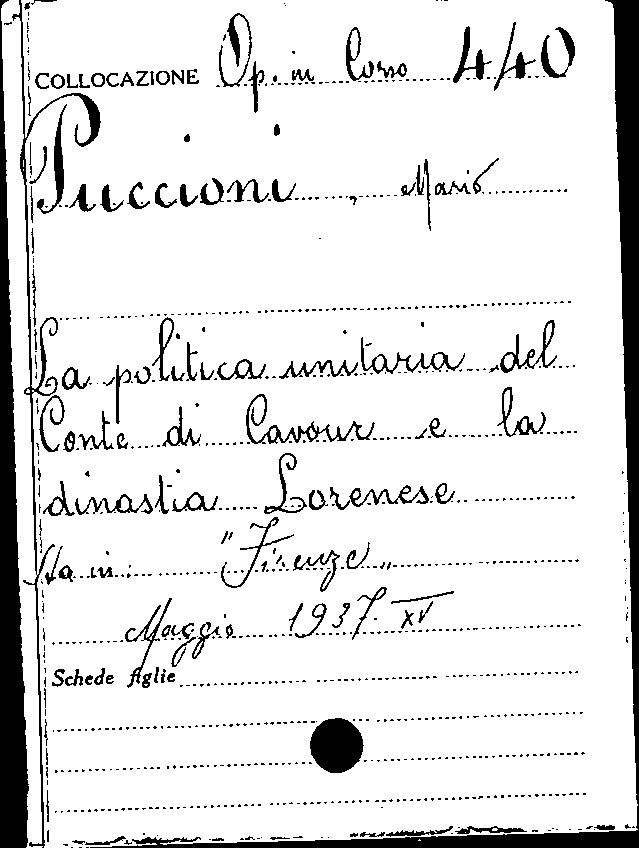 COLLOCAZIONE Op. in Corso 4/40
Puccioni, Mario
La politica unitaria del
Conte di Cavour e la
dinastia Lorenese
Sta in: "Firenze"
Maggio 1937. XV
Schede figlie